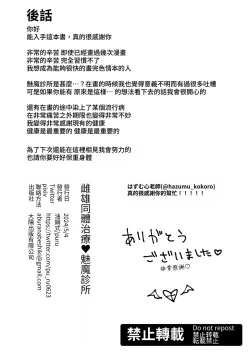 後話
你好
能入手這本書，真的很感謝你
非常的辛苦 即使已經畫過幾次漫畫
非常的辛苦 完全習慣不了
我想成為能夠很快的畫完色情本的人
魅魔診所是甚麼…？在畫的時候我也覺得意義不明而有過很多吐槽
可是如果你能有 原來是這樣… 的想法看下去的話我會很開心的
還有在畫的途中染上了某個流行病
在非常痛苦之外期限也變得非常不妙
我變得非常感謝現有的健康
健康是最重要的 健康是最重要的
為了下次還能在這裡相見我會努力的
也請你要好好保重身體
雌雄同體治療♥魅魔診所
發行日 2024/5/4
Twitter https://twitter.com/pu_ru0623
出版社 太陽出版有限公司
はずむ心老師(@hazumu_kokoro)
真的很感謝你的幫忙！！！！！
ありがとう
ございました♡
非常感謝♡
禁止轉載
Do not repost
禁止轉載
転載禁止